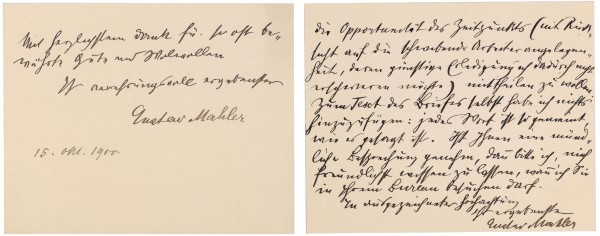 Mit herzlichstem Dank für so oft be-
währte Güte und Wolwollen
Ihr verehrungsvoll ergebenster
Gustav Mahler
15. Okt. 1900
die Opportunität des Zeitpunkts (mit Rück-
sicht auf die schwebende Arbeiterangelegen-
heit, deren günstige Erledigung ich dadurch nicht
erschweren möchte) mittheilen zu wollen.
Zum Text des Briefes selbst habe ich nichts
hinzuzufügen: jedes Wort ist so gemeint,
wie es gesagt ist. Ist Ihnen eine münd-
liche Besprechung genehm, dann bitte ich, mich
freundlichst wissen zu lassen, wann ich Sie
in Ihrem Bureau besuchen darf.
In ausgezeichneter Hochachtung
Ihr ergebenster
Gustav Mahler